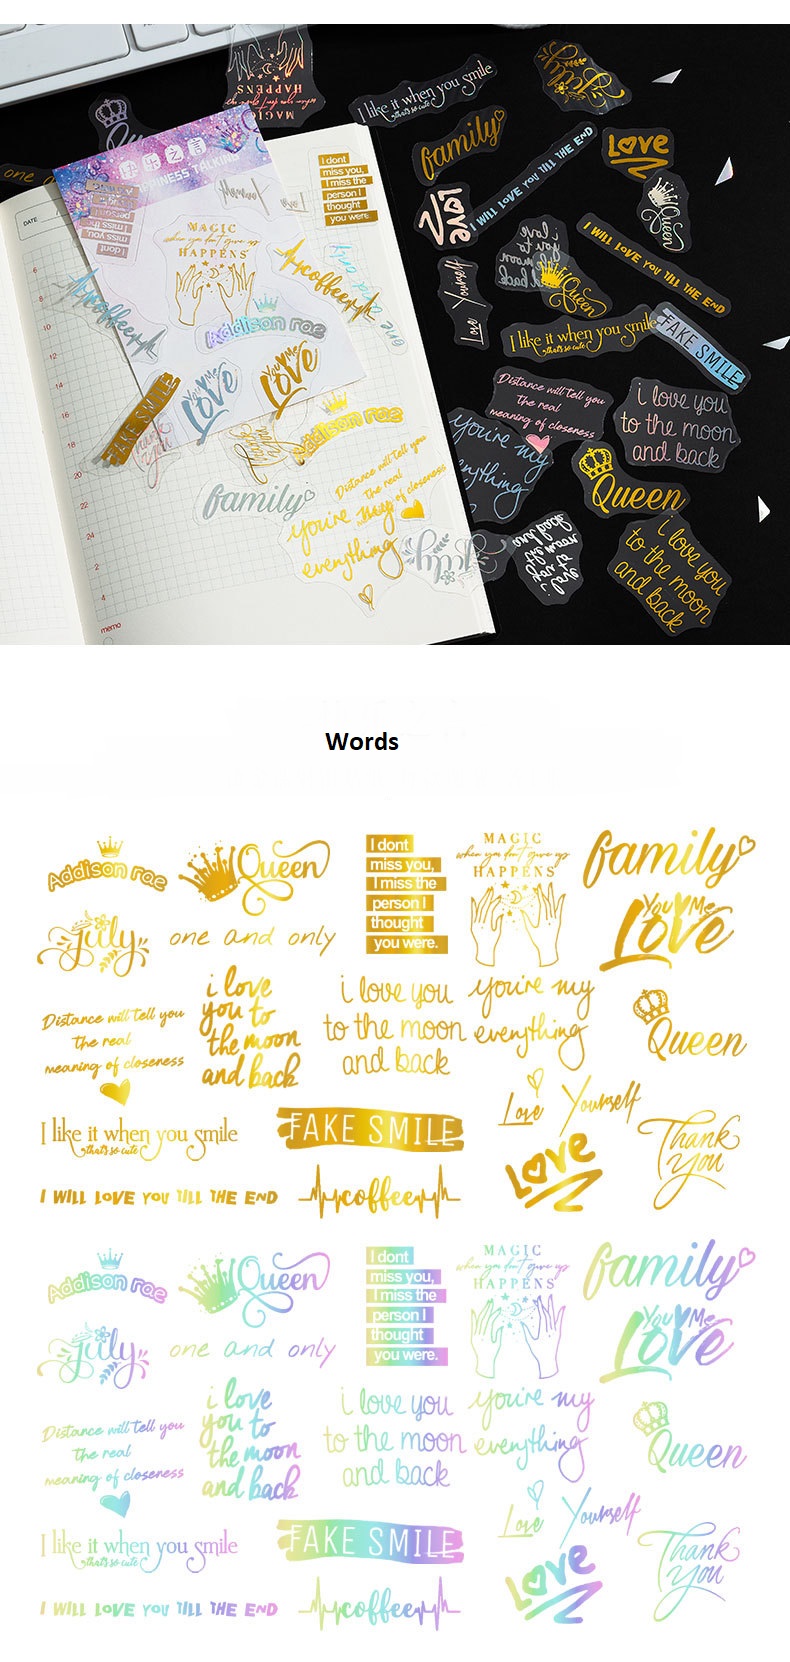 MAGIC
when you don't give up
HAPPENS
I like it when you smile
thats so cute
July
Queen
family
LOVE
I WILL LOVE YOU TILL THE END
LOVE
Queen
one a
PINESS TALKING
DATE
I dont
miss you,
I miss the
person I
thought
you were.
I dont
miss you,
I miss the
person I
MAGIC
when you don't give up
HAPPENS
coffee
coffee
one and only
Addison rae
i love
you to
the moon
and back
Queen
I WILL LOVE YOU TILL THE END
Love Yourself
I like it when you smile
thats so cute
FAKE SMILE
You Me
LOVE
You Me
LOVE
FAKE SMILE
Thank
you
Addison rae
Distance will tell you
the real
meaning of closeness
i love you
to the moon
and back
you're my
everything
Queen
family
Distance will tell you
the real
meaning of closeness
you're my
everything
July
i love
you to
the moon
and back
i love you
to the moon
and back
6
8
10
12
14
16
18
20
22
24
2
4
memo
Words
Addison rae
Queen
I dont
miss you,
I miss the
person I
thought
you were.
MAGIC
when you don't give up
HAPPENS
family
july
one and only
You Me
LOVE
Distance will tell you
the real
meaning of closeness
i love
you to
the moon
and back
i love you
to the moon
and back
you're my
everything
Queen
I like it when you smile
thats so cute
FAKE SMILE
Love Yourself
Love
Thank
you
I WILL LOVE YOU TILL THE END
coffee
Addison rae
Queen
I dont
miss you,
I miss the
person I
thought
you were.
MAGIC
when you don't give up
HAPPENS
family
july
one and only
You Me
LOVE
Distance will tell you
the real
meaning of closeness
i love
you to
the moon
and back
i love you
to the moon
and back
you're my
everything
Queen
I like it when you smile
thats so cute
FAKE SMILE
Love Yourself
Love
Thank
you
I WILL LOVE YOU TILL THE END
coffee